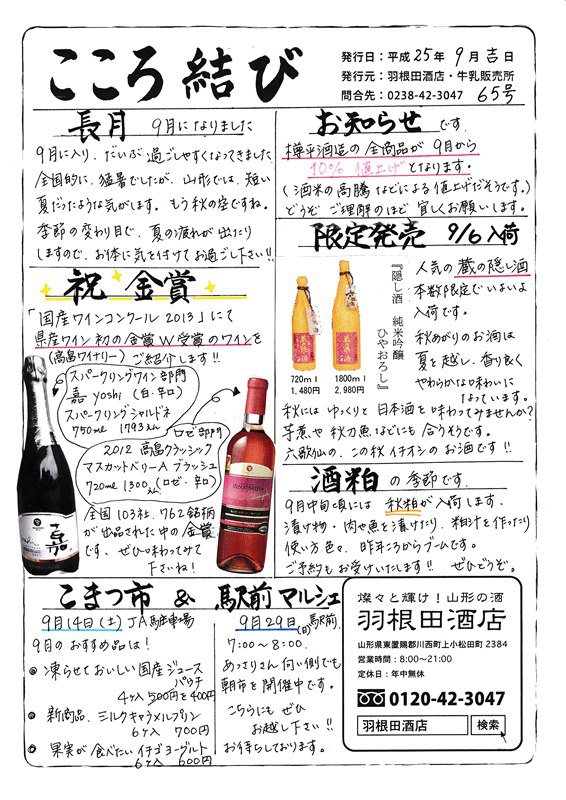 こころ結び
発行日：平成25年 9月吉日
発行元：羽根田酒店・牛乳販売所
問合先：0238-42-3047 65号
長月 9月になりました
9月に入り、だいぶ過ごしやすくなってきました
全国的に、猛暑でしたが、山形では、短い
夏だったような気がします。もう秋の空ですね。
季節の変わり目で、夏の疲れが出たり
しますので、お体に気を付けてお過ごし下さい!!
お知らせ です。
樽平酒造の全商品が9月から
10%値上げとなります。
(酒米の高騰などによる値上げだそうです。)
どうぞご理解のほど宜しくお願いします。
祝 金賞
「国産ワインコンクール2013」にて
県産ワイン初の金賞W受賞のワインを
(高畠ワイナリー)ご紹介します!!
スパークリングワイン部門
嘉 yoshi (白・辛口)
スパークリングシャルドネ
750ml 1793えん
ロゼ部門
2012 高畠クラシック
マスカットベリーA ブラッシュ
720ml 1300えん (ロゼ・辛口)
全国103社、762銘柄
が出品された中の金賞
です、ぜひ味わってみて
下さいね!
限定発売 9/6入荷
『隠し酒 純米吟醸
ひやおろし』
720ml
1,480円
1800ml
2,980円
人気の蔵の隠し酒
本数限定でいよいよ
入荷です。
秋あがりのお酒は
夏を越し、香り良く
やわらかな味わいに
なっています。
秋にはゆっくりと日本酒を味わってみませんか?
芋煮や秋刀魚などにも合うそうです。
六歌仙の、この秋イチオシのお酒です!!
酒粕 の季節です。
9月中旬頃には秋粕が入荷します。
漬け物・肉や魚を漬けたり、粕汁を作ったり
使い方色々、昨年ころからブームです。
ご予約もお受けいたします!! ぜひどうぞ。
こまつ市 & 駅前マルシェ
9月14日(土) JA駐車場
9月のおすすめ品は!
凍らせておいしい国産ジュース
パウチ
4ヶ入 500円を400円
新商品、ミルクキャラメルプリン
6ヶ入 700円
果実が食べたいイチゴヨーグルト
6ヶ入 600円
9月29日(日)駅前
7:00〜8:00、
あっさりさん向い側でも
朝市を開催中です。
こちらにもぜひ
お越し下さい!!
お待ちしております。
燦々と輝け！山形の酒
羽根田酒店
山形県東置賜郡川西町上小松田町2384
営業時間：8:00〜21:00
定休日：年中無休
0120-42-3047
羽根田酒店 検索